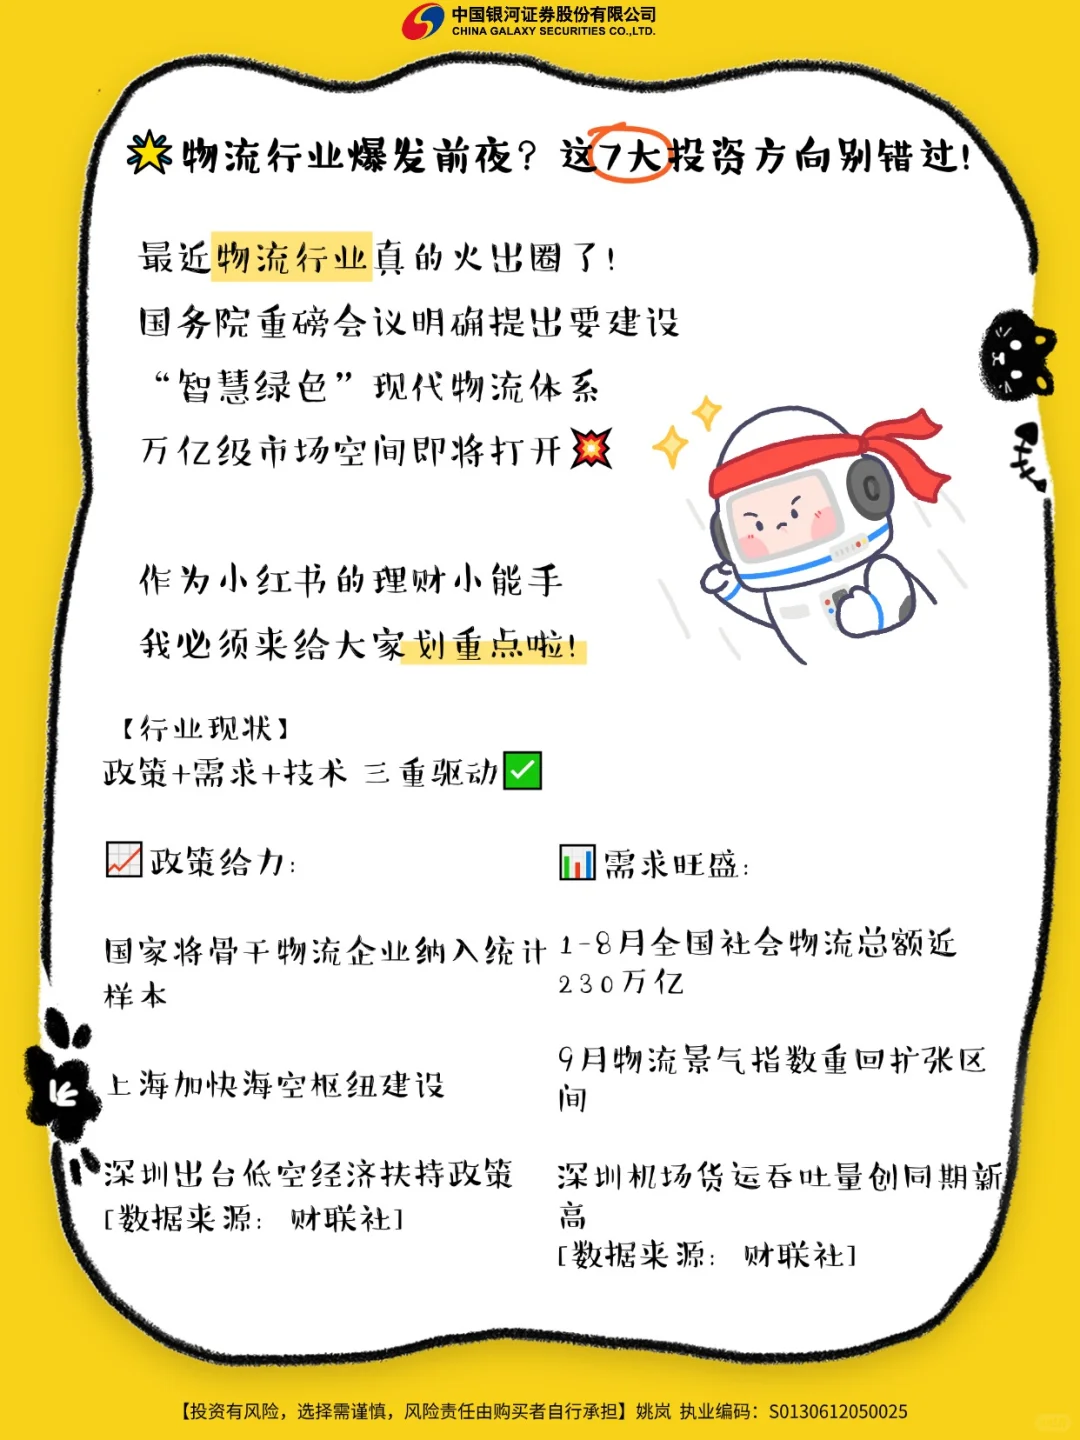 中国银河证券股份有限公司
CHINA GALAXY SECURITIES CO.,LTD.
物流行业爆发前夜？这7大投资方向别错过！
最近物流行业真的火出圈了！
国务院重磅会议明确提出要建设
“智慧绿色”现代物流体系
万亿级市场空间即将打开
作为小红书的理财小能手
我必须来给大家划重点啦！
【行业现状】
政策+需求+技术 三重驱动
政策给力：
国家将骨干物流企业纳入统计
样本
上海加快海空枢纽建设
深圳出台低空经济扶持政策
[数据来源： 财联社]
需求旺盛：
1-8月全国社会物流总额近
230万亿
9月物流景气指数重回扩张区
间
深圳机场货运吞吐量创同期新
高
[数据来源： 财联社]
【投资有风险，选择需谨慎，风险责任由购买者自行承担】姚岚 执业编码：S0130612050025